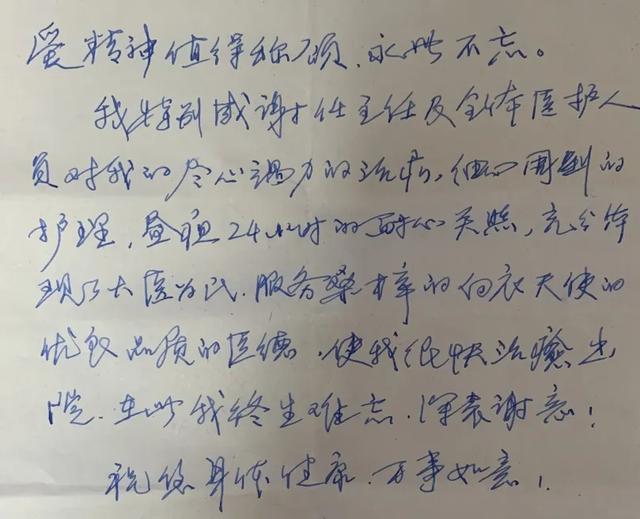 爱精神值得称颂、永世不忘。
我特别感谢任主任及全体医护人
员对我的尽心竭力的治病，细心周到的
护理，昼夜24小时的耐心关照，充分体
现了大医为民、服务桑梓的白衣天使的
优良品质的医德，使我很快治愈出
院，在此我终生难忘，深表谢意！
祝您身体健康，万事如意！